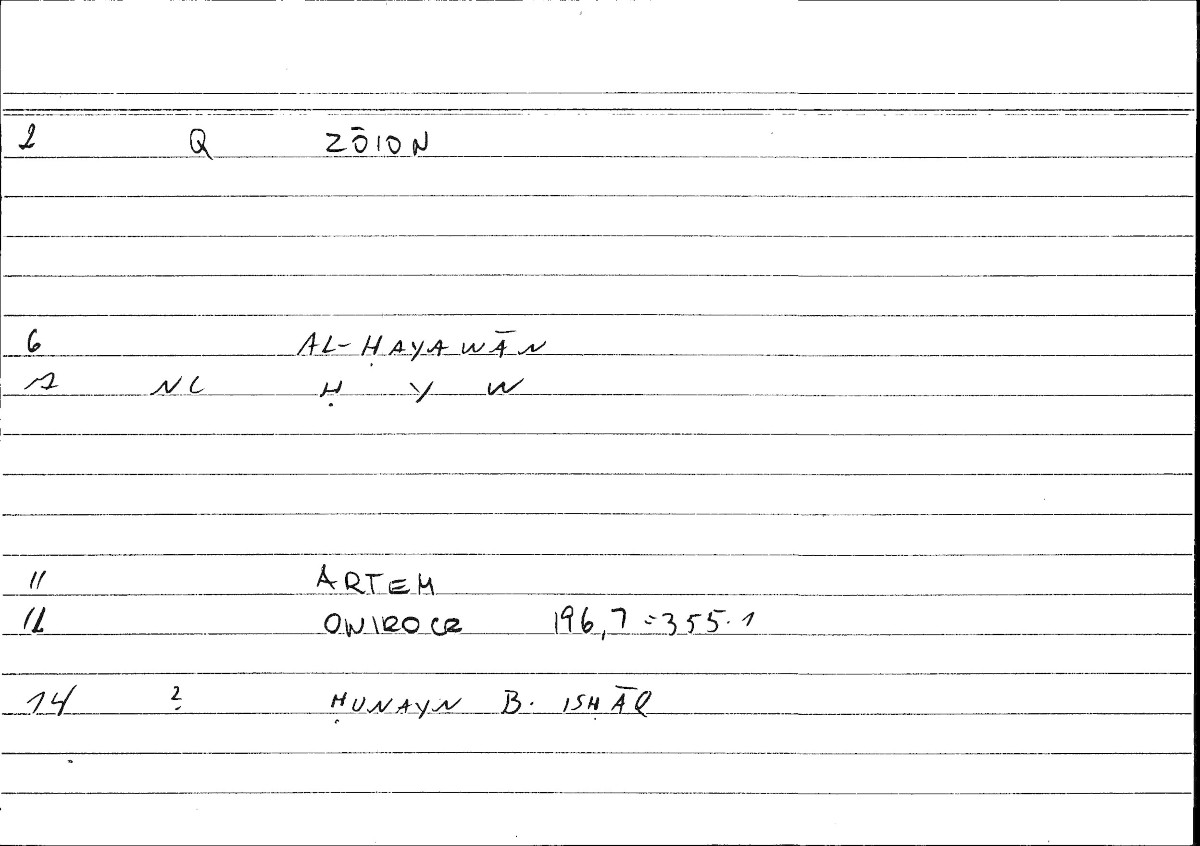 2 Q ZŌION
6 AL-ḤAYAWĀN
NC Ḥ Y W
11 ARTEM
12 ONIROCR 196,7=355.1
14 ? ḤUNAYN B. ISḤĀQ